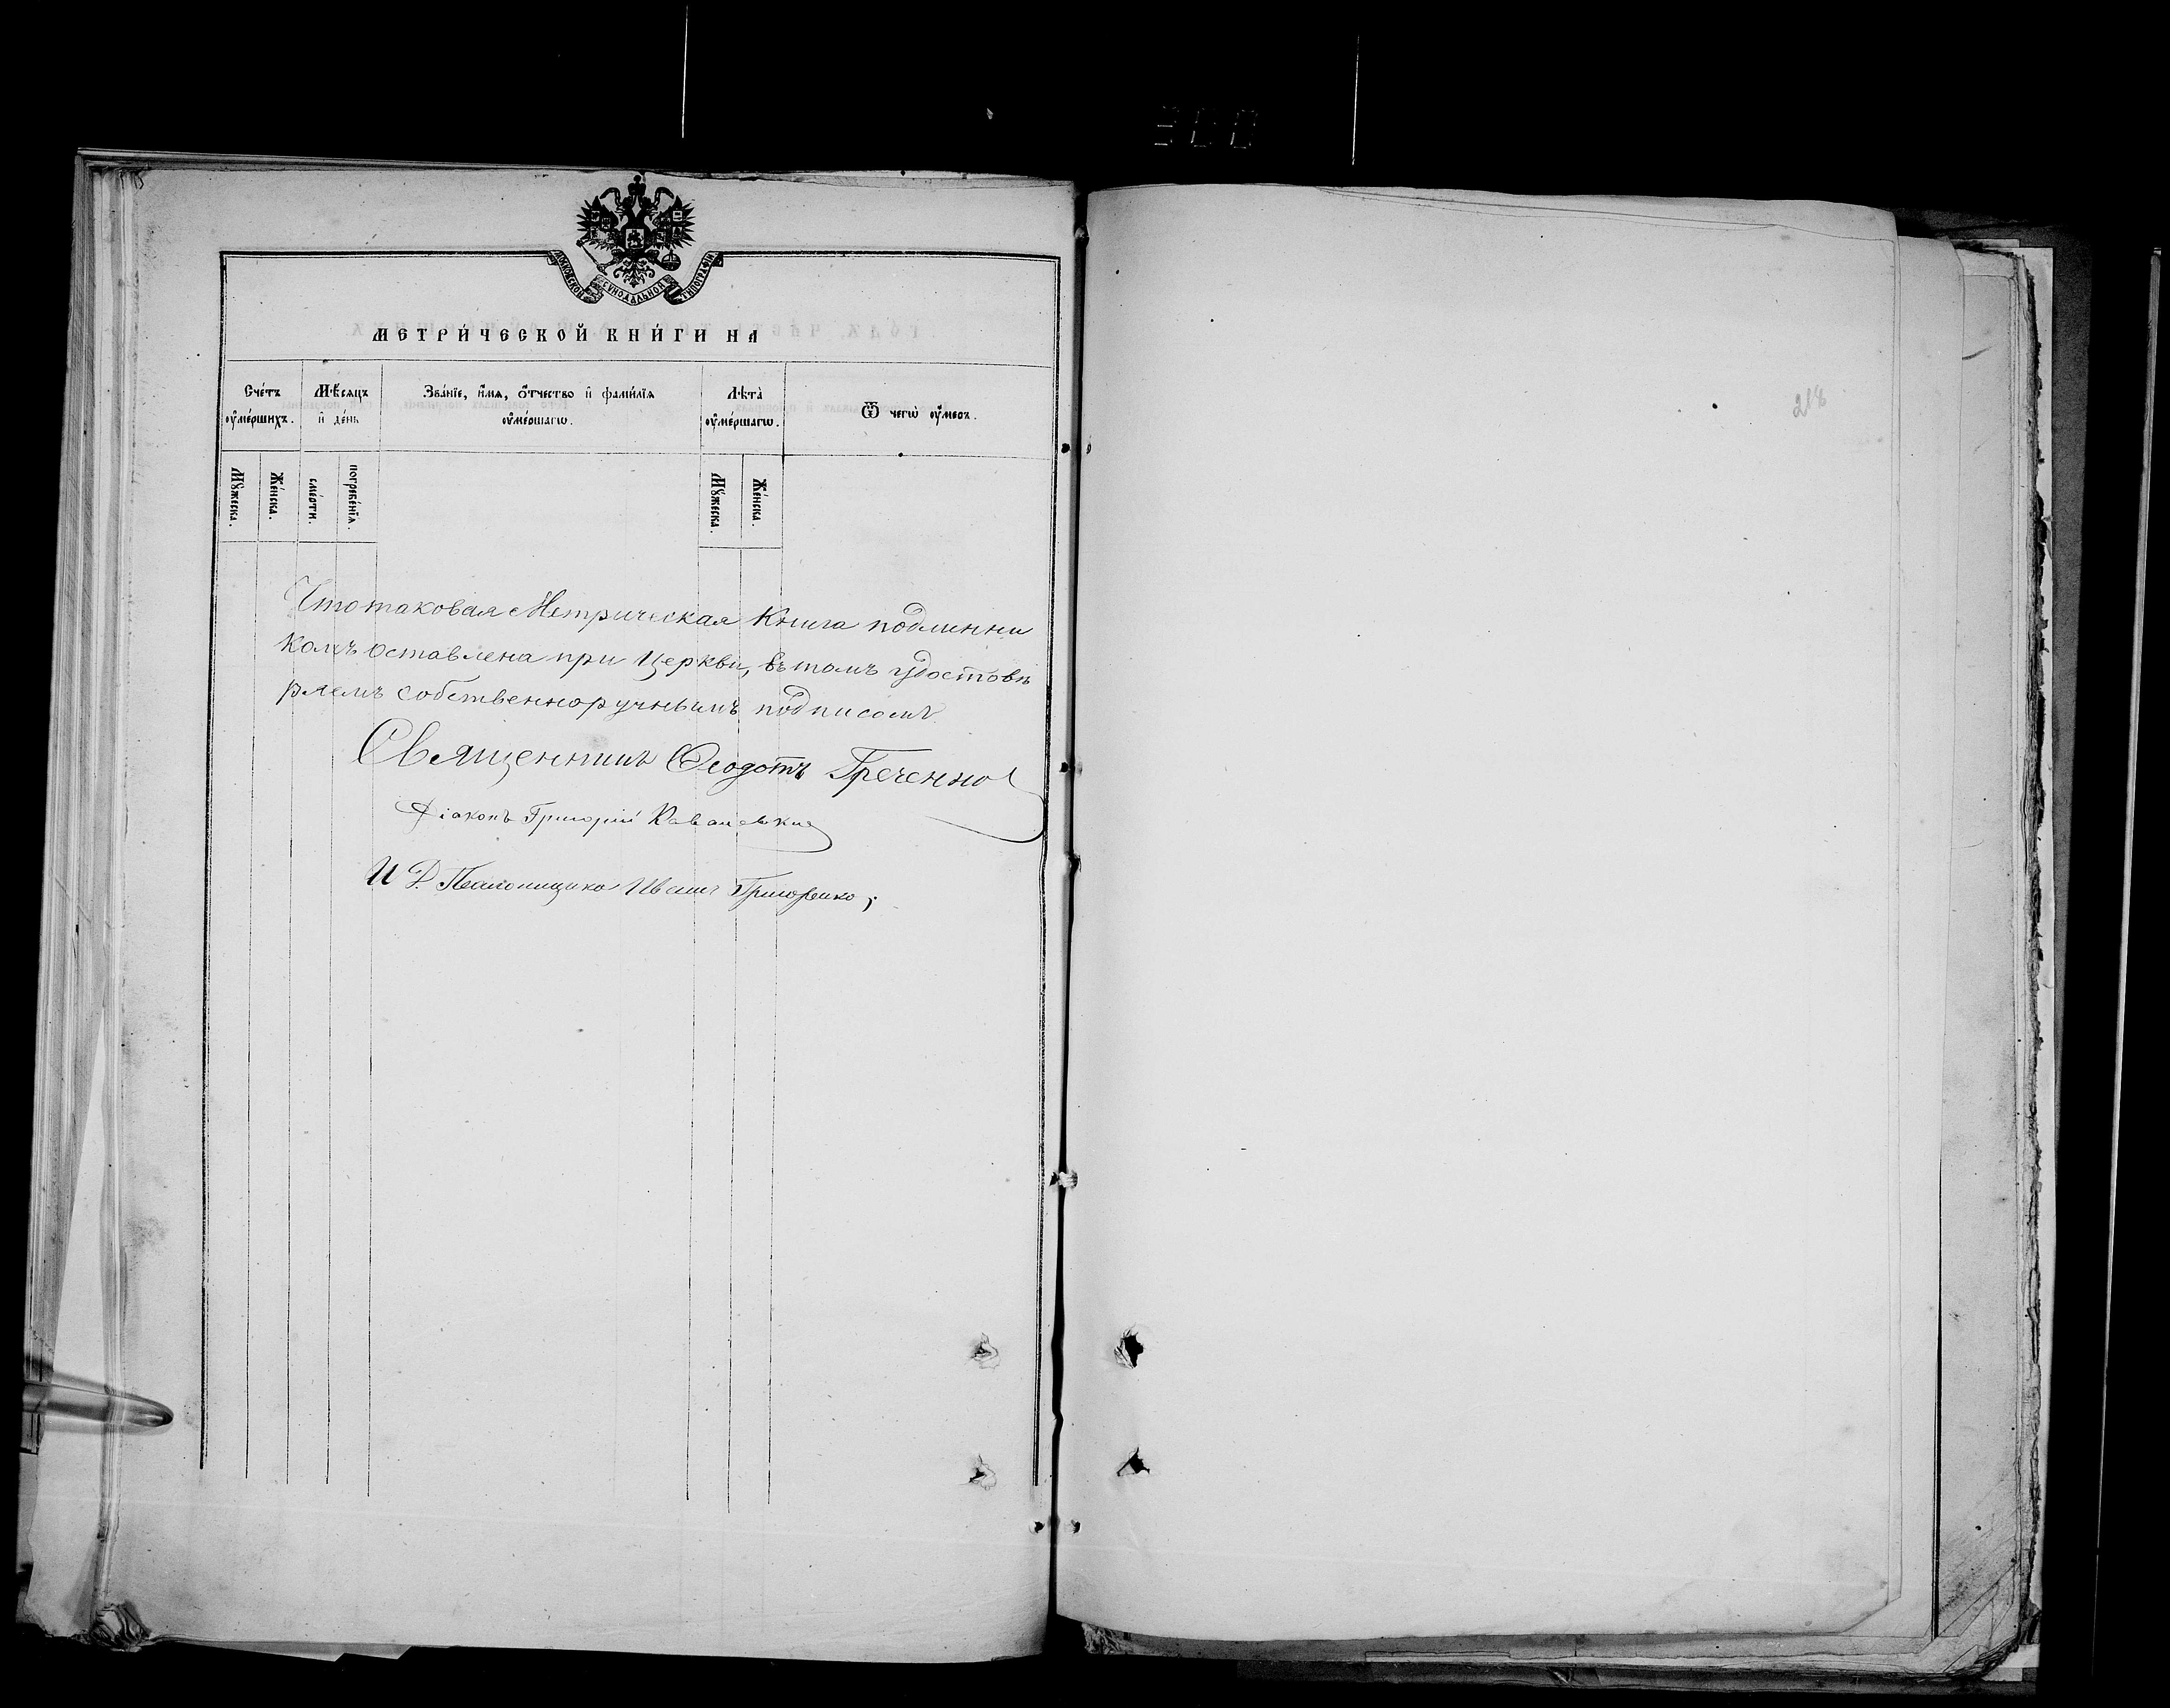 МОСКОВСКОЙ СУНОДАЛЬНОЙ ТИПОГРАФІИ
МЕТРИ́ЧЕСКОЙ КНИ́ГИ НА
Сче́тъ ᲂу҆ме́ршихъ.
Мѣ́сяцъ и҆ де́нь
Зва́нїе, и҆́мѧ, ѻ҆́тчество и҆ фами́лїѧ ᲂу҆ме́ршагѡ.
Лѣ́та ᲂу҆ме́ршагѡ.
Ѿ чегѡ̀ ᲂу҆́меръ.
Мꙋ́жеска.
Же́нска.
сме́рти.
погребе́нїѧ.
Мꙋ́жеска.
Же́нска.
Что таковая Метрическая Книга подлинни
комъ оставлена при Церкви, въ томъ удостовѣ
ряемъ собственноручнымъ подписомъ
Священникъ Ѳеодотъ Греченко
Діаконъ Григорій Ковалевскій
И Д Псаломщика Иванъ Григоренко;
218